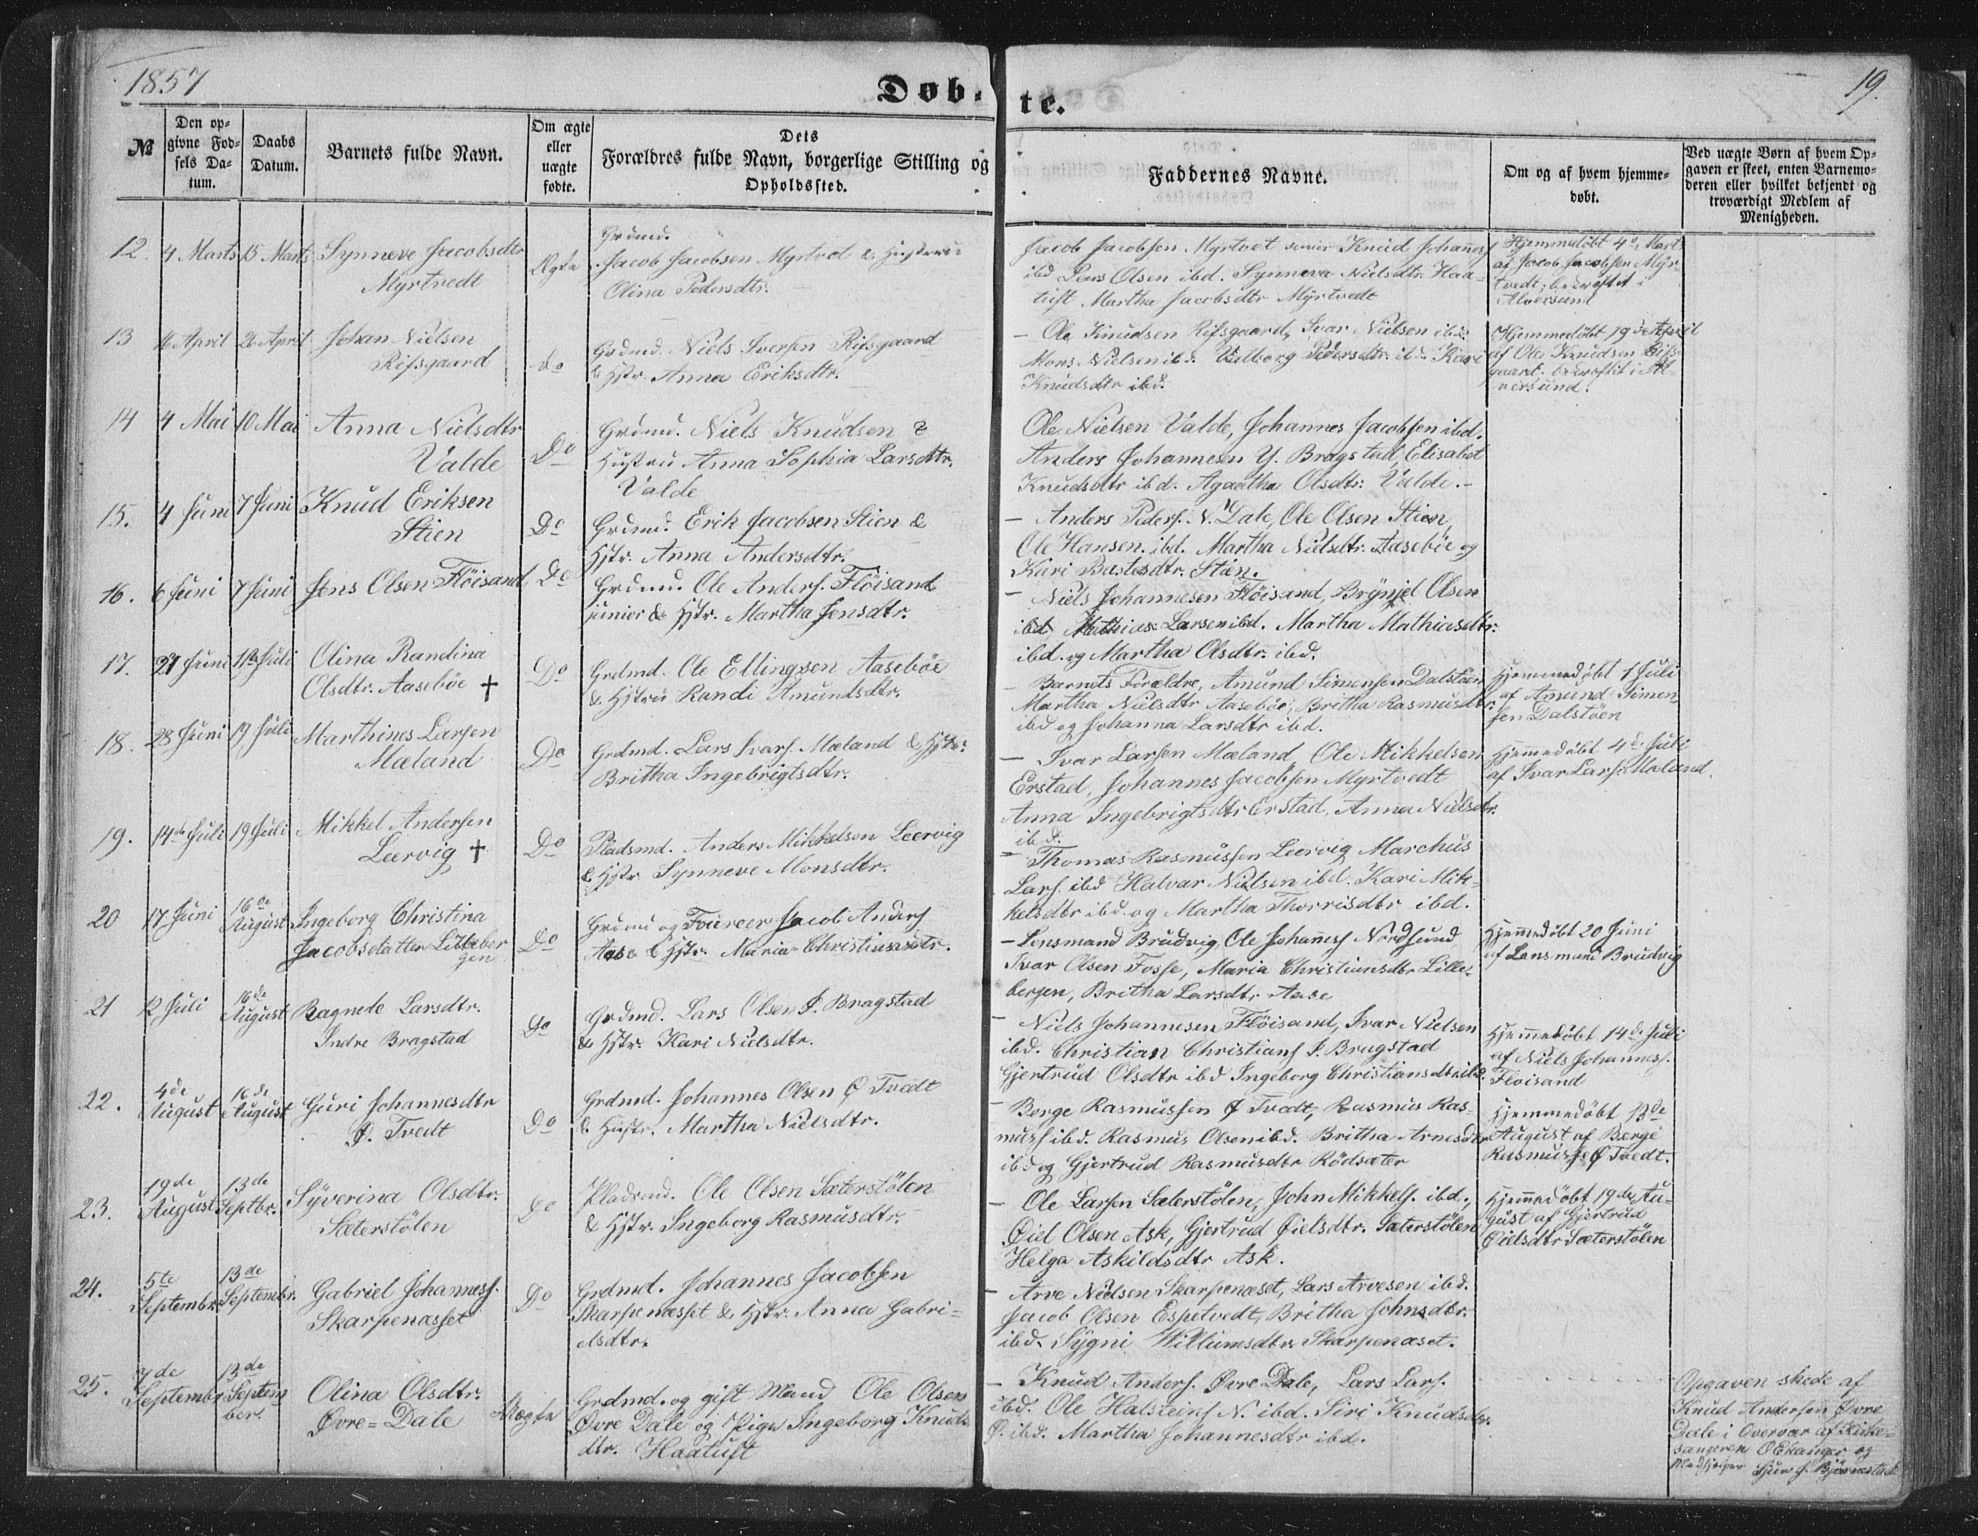 1857
Døb-
te.
19.
№
Den op-
givne Fød-
sels Da-
tum.
Daabs
Datum.
Barnets fulde Navn.
Om ægte
eller
uægte
fødte.
Dets
Forældres fulde Navn, borgerlige Stilling og
Opholdssted.
Faddernes Navne.
Om og af hvem hjemme-
døbt.
Ved uægte Børn af hvem Op-
gaven er skeet, enten Barnemo-
deren eller hvilket bekjendt og
troværdigt Medlem af
Menigheden.
12. 4 Marts 15 Marts Synneve Jacobsdtr
Myrtvedt
Ægte
Grdmd.
Jacob Jacobsen Myrtvd & Hustru
Olina Pedersdtr.
Jacob Jacobsen Myrtvet senior Knud Johannesf
ibd Lars Olsen ibd. Synneva Nielsdtr Haa-
tuft Martha Jacobsdtr Myrtvedt
Hjemmedøbt 4de Mart
af Jacob Jacobsen Myr-
tvedt, bekræftet i
Alversund
13 16 April 26 April Johan Nielsen
Risgaard
do
Grdmd. Niels Iversen Risgaard
& Hstr. Anna Eriksdtr.
— Ole Knudsen Risgaard, Ivar Nielsen ibd.
Mons Nielsen ibd. Valborg Pedersdtr ibd. Kari
Knudsdtr ibd.
Hjemmedøbt 19de April
af Ole Knudsen Riss-
gaart. bekræftet i Al-
versund.
14 4 Mai 10 Mai Anna Nielsdtr
Valde
Do
Grdmd. Niels Knudsen &
Hustru Anna Sophia Larsdtr.
Valde
Ole Nielsen Valde, Johannes Jacobsen ibd.
Anders Johannesen Y. Bragstad, Elisabet
Knudsdtr ibd. Agaatha Olsdtr. Valde. —
15. 4 Juni 7 Juni Knud Eriksen
Stien
Do
Grdmd. Erik Jacobsen Stien &
Hstr. Anna Andersdtr.
— Anders Pedersf. N. Dale, Ole Olsen Stien,
Ole Hansen ibd. Martha Nielsdtr. Aasebøe og
Kari Bastesdtr. Stien.
16. 6 Juni 7 Juni Jens Olsen Fløisand
Do
Grdmd. Ole Andersf. Fløisand
junior & Hstr. Martha Jensdtr.
— Niels Johannesen Fløisand, Brynjel Olsen
ibd Mathias Larsen ibd. Martha Mathiasdtr.
ibd. og Martha Olsdtr. ibd.
17. 27 Juni Juli Olina Randina
Olsdtr. Aasebøe †
Do
Grdmd. Ole Ellingsen Aasebøe
& Hstru Randi Amundsdtr.
— Barnets Forældre, Amund Simonsen Dalstøen
Martha Nielsdtr Aasebøe, Britha Rasmusdtr.
ibd og Johanna Larsdtr ibd.
Hjemmedøbt 1 Juli
af Amund Simon-
sen Dalstøen
18. 28 Juni 19 Juli Marthinus Larsen
Mæland
Do
Grdmd. Lars Ivarsf. Mæland & Hstr.
Britha Ingebrigtsdtr.
— Ivar Larsen Mæland Ole Mikkelsen
Erstad, Johannes Jacobsen Myrtvedt
Anna Ingebrigtsdtr Erstad, Anna Nielsdtr.
ibd.
Hjemmedøbt 4de Juli
af Ivar Larsf. Mæland.
19. 14de Juli 19 Juli Mikkel Andersen
Leervig †
Do
Pladsmd. Anders Mikkelsen Leervig
& Hstr. Synneve Monsdtr.
— Thomas Rasmussen Leervig Marchus
Larsf. ibd Halvar Nielsen ibd. Kari Mik-
kelsdtr ibd. og Martha Thorrisdtr ibd.
20 17 Juni 16de
August Ingeborg Christina
Jacobsdatter Lilleber
gen
Do
Grdmd og Foureer Jacob Andersf
Aase & Hstr. Maria Christiansdtr.
— Lensmand Brudvig, Ole Johannesf Nordsund
Ivar Olsen Fosse, Maria Christiansdtr Lille-
bergen, Britha Larsdtr Aase
Hjemmedøbt 20 Juni
af Lensmand Brudvig
21 12 Juli 16de
August Ragnede Larsdtr.
Indre Bragstad
Do
Grdmd. Lars Olsen I. Bragstad
& Hstr. Kari Nielsdtr.
— Niels Johannesen Fløisand, Ivar Nielsen
ibd. Christian Christiansf I. Bragstad
Gjertrud Olsdtr ibd Ingeborg Christiansdtr ibd.
Hjemmedøbt 14de Juli
af Niels Johannesf.
Floisand
22. 4de
August 16de
August Guri Johannesdtr
Ø. Tvedt
Do
Grdmd. Johannes Olsen Ø Tvedt
& Hustr. Martha Nielsdtr.
— Børge Rasmussen Ø Tvedt, Rasmus Ras-
mussf ibd. Rasmus Olsen ibd. Britha Arnesdtr
ibd og Gjertrud Rasmusdtr Rødsæter
Hjemmedøbt 12de
August af Børge
Rasmussen Ø Tvedt.
23. 19de
August 13de
Septbr. Syverina Olsdtr.
Sæterstølen
Do
Pladsmd. Ole Olsen Sæterstølen
& Hstr. Ingeborg Rasmusdtr.
— Ole Larsen Sæterstølen, John Mikkelsf. ibd.,
Øiel Olsen Ask, Gjertrud Øielsdtr. Sæterstølen
Helga Askildsdtr Ask.
Hjemmedøbt 19de Au-
gust af Gjertrud
Øielsdtr Sæterstølen
24. 5te
Septembr. 13de
Septembr. Gabriel Johannesf.
Skarpenæsset
Do
Grdmd. Johannes Jacobsen
Skarpenæsset & Hstr. Anna Gabri-
elsdtr.
— Arve Nielsen Skarpenæset, Lars Arvesen ibd.
Jacob Olsen Espetvedt, Britha Johnsdtr.
ibd. Sygni Willumsdtr Skarpenæset.
25. 7de
Septembr. 13de
Septem
ber. Olina Olsdtr.
Øvre-Dale
Uægte
Grdmd. og gift Mand Ole Olsen
Øvre Dale og Pige Ingeborg Knuds
dtr. Haatuft
— Knud Andersf. Øvre Dale, Lars Larsf.
ibd. Ole Halsteinsf N. ibd. Siri Knudsdtr.
Ø. ibd. Martha Johannesdtr ibd.
Opgaven skede af
Knud Andersen Øvre
Dale i Overvær af Kirke-
sangeren O Eknanger og
Medhjelper Sjur J.